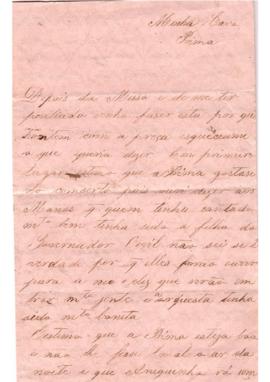 Minha Cara
Prima
Depois da Missa e de me ter
penteado venho fazer esta por que
hontem com a preça esqueceume
o que queria dizer Em primeiro
lugar que a Prima gostase
do concerto pois ouvi dizer ao
Manos q quem tinha cantado
mto bem tinha sido a filha do
Governador Civil não sei se é
verdade por q elles
para a e diz que
mta jente e a orquesta tinha
sido mto bonita
Estimo que a Prima esteja boa
e não lhe fese mal o ar da
noite e que Aneguinha vá